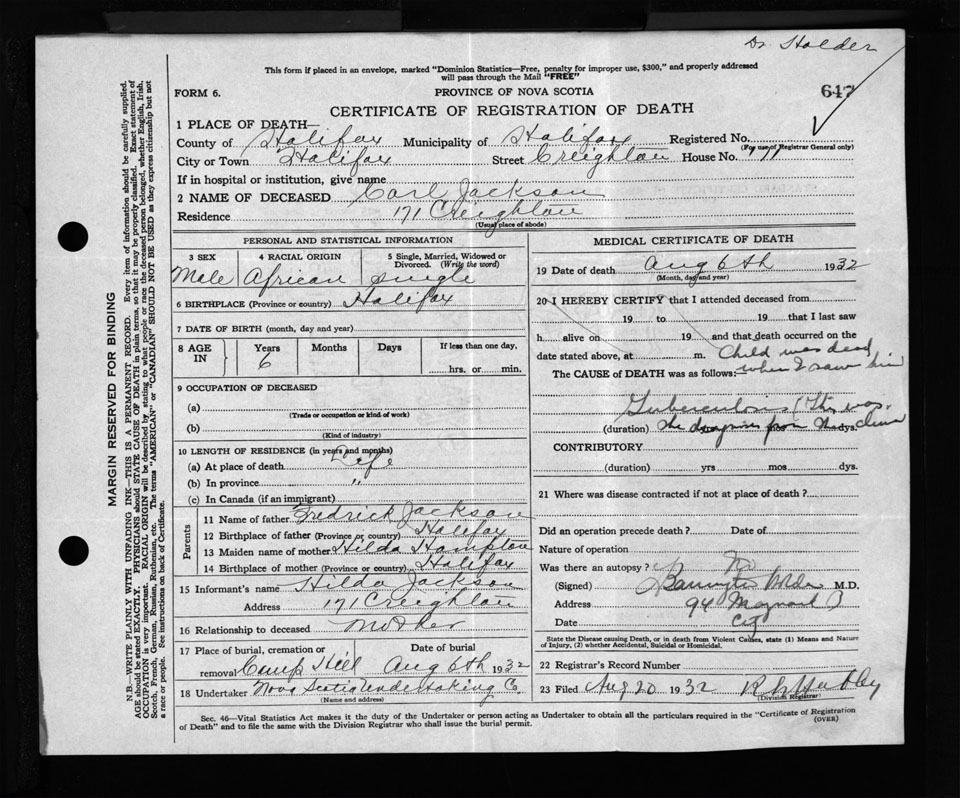 Dr Holder
This form if placed in an envelope, marked "Dominion Statistics—Free, penalty for improper use, $300," and properly addressed
will pass through the Mail "FREE"
FORM 6.
PROVINCE OF NOVA SCOTIA
647
CERTIFICATE OF REGISTRATION OF DEATH
1 PLACE OF DEATH—
County of Halifax Municipality of Halifax Registered No.
(For use of Registrar General only)
City or Town Halifax Street Creighton House No. 171
If in hospital or institution, give name
2 NAME OF DECEASED Carl Jackson
Residence 171 Creighton
(Usual place of abode)
PERSONAL AND STATISTICAL INFORMATION
3 SEX 4 RACIAL ORIGIN 5 Single, Married, Widowed or
Divorced. (Write the word)
Male African Single
6 BIRTHPLACE (Province or country) Halifax
7 DATE OF BIRTH (month, day and year)
8 AGE IN Years Months Days If less than one day,
6 hrs. or min.
9 OCCUPATION OF DECEASED
(a)
(Trade or occupation or kind of work)
(b)
(Kind of industry)
10 LENGTH OF RESIDENCE (in years and months)
(a) At place of death Life
(b) In province "
(c) In Canada (if an immigrant)
Parents
11 Name of father Fredrick Jackson
12 Birthplace of father (Province or country) Halifax
13 Maiden name of mother Hilda Hampton
14 Birthplace of mother (Province or country) Halifax
15 Informant's name Hilda Jackson
Address 171 Creighton
16 Relationship to deceased Mother
17 Place of burial, cremation or Date of burial
removal Camp Hill Aug 6th 1932
18 Undertaker Nova Scotia Undertaking Co.
(Name and address)
MEDICAL CERTIFICATE OF DEATH
19 Date of death Aug 6th 1932
(Month, day and year)
20 I HEREBY CERTIFY that I attended deceased from
19 to 19 that I last saw
h alive on 19 and that death occurred on the
date stated above, at m. Child was dead
The CAUSE OF DEATH was as follows: when I saw him
Tuberculosis (This was
(duration) the diagnosis from mos. dys. Clinic
CONTRIBUTORY
(duration) yrs mos dys.
21 Where was disease contracted if not at place of death?
Did an operation precede death? Date of
Nature of operation
Was there an autopsy? No
(Signed) M.D.
Address 94 Maynard
Date City
State the Disease causing Death, or in death from Violent Causes, state (1) Means and Nature
of Injury, (2) whether Accidental, Suicidal or Homicidal.
22 Registrar's Record Number
23 Filed Aug 20 1932
(Division Registrar)
Sec. 46—Vital Statistics Act makes it the duty of the Undertaker or person acting as Undertaker to obtain all the particulars required in the "Certificate of Registration
of Death" and to file the same with the Division Registrar who shall issue the burial permit.
(OVER)
MARGIN RESERVED FOR BINDING
N.B.—WRITE PLAINLY WITH UNFADING INK—THIS IS A PERMANENT RECORD. Every item of information should be carefully supplied.
AGE should be stated EXACTLY. PHYSICIANS should STATE CAUSE OF DEATH in plain terms, so that it may be properly classified. Exact statement of
OCCUPATION is very important. RACIAL ORIGIN will be described by stating to what people or race the deceased person belonged, whether English, Irish,
Scotch, French, German, Russian, Ruthenian, etc. The terms "AMERICAN" or "CANADIAN" SHOULD NOT BE USED as they express citizenship but not
a race or people. See instructions on back of Certificate.